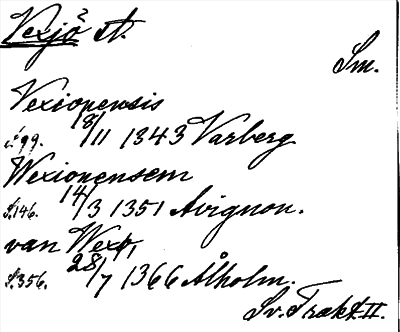 Vexjö 2 st.
Sm.
Vexionensis
s. 99. 18/11 1343 Varberg
Wexionensem
S. 146. 14/3 1351 Avignon.
van Wex
S. 356. 28/7 1366 Ålholm.
Sv. Trakt. II.